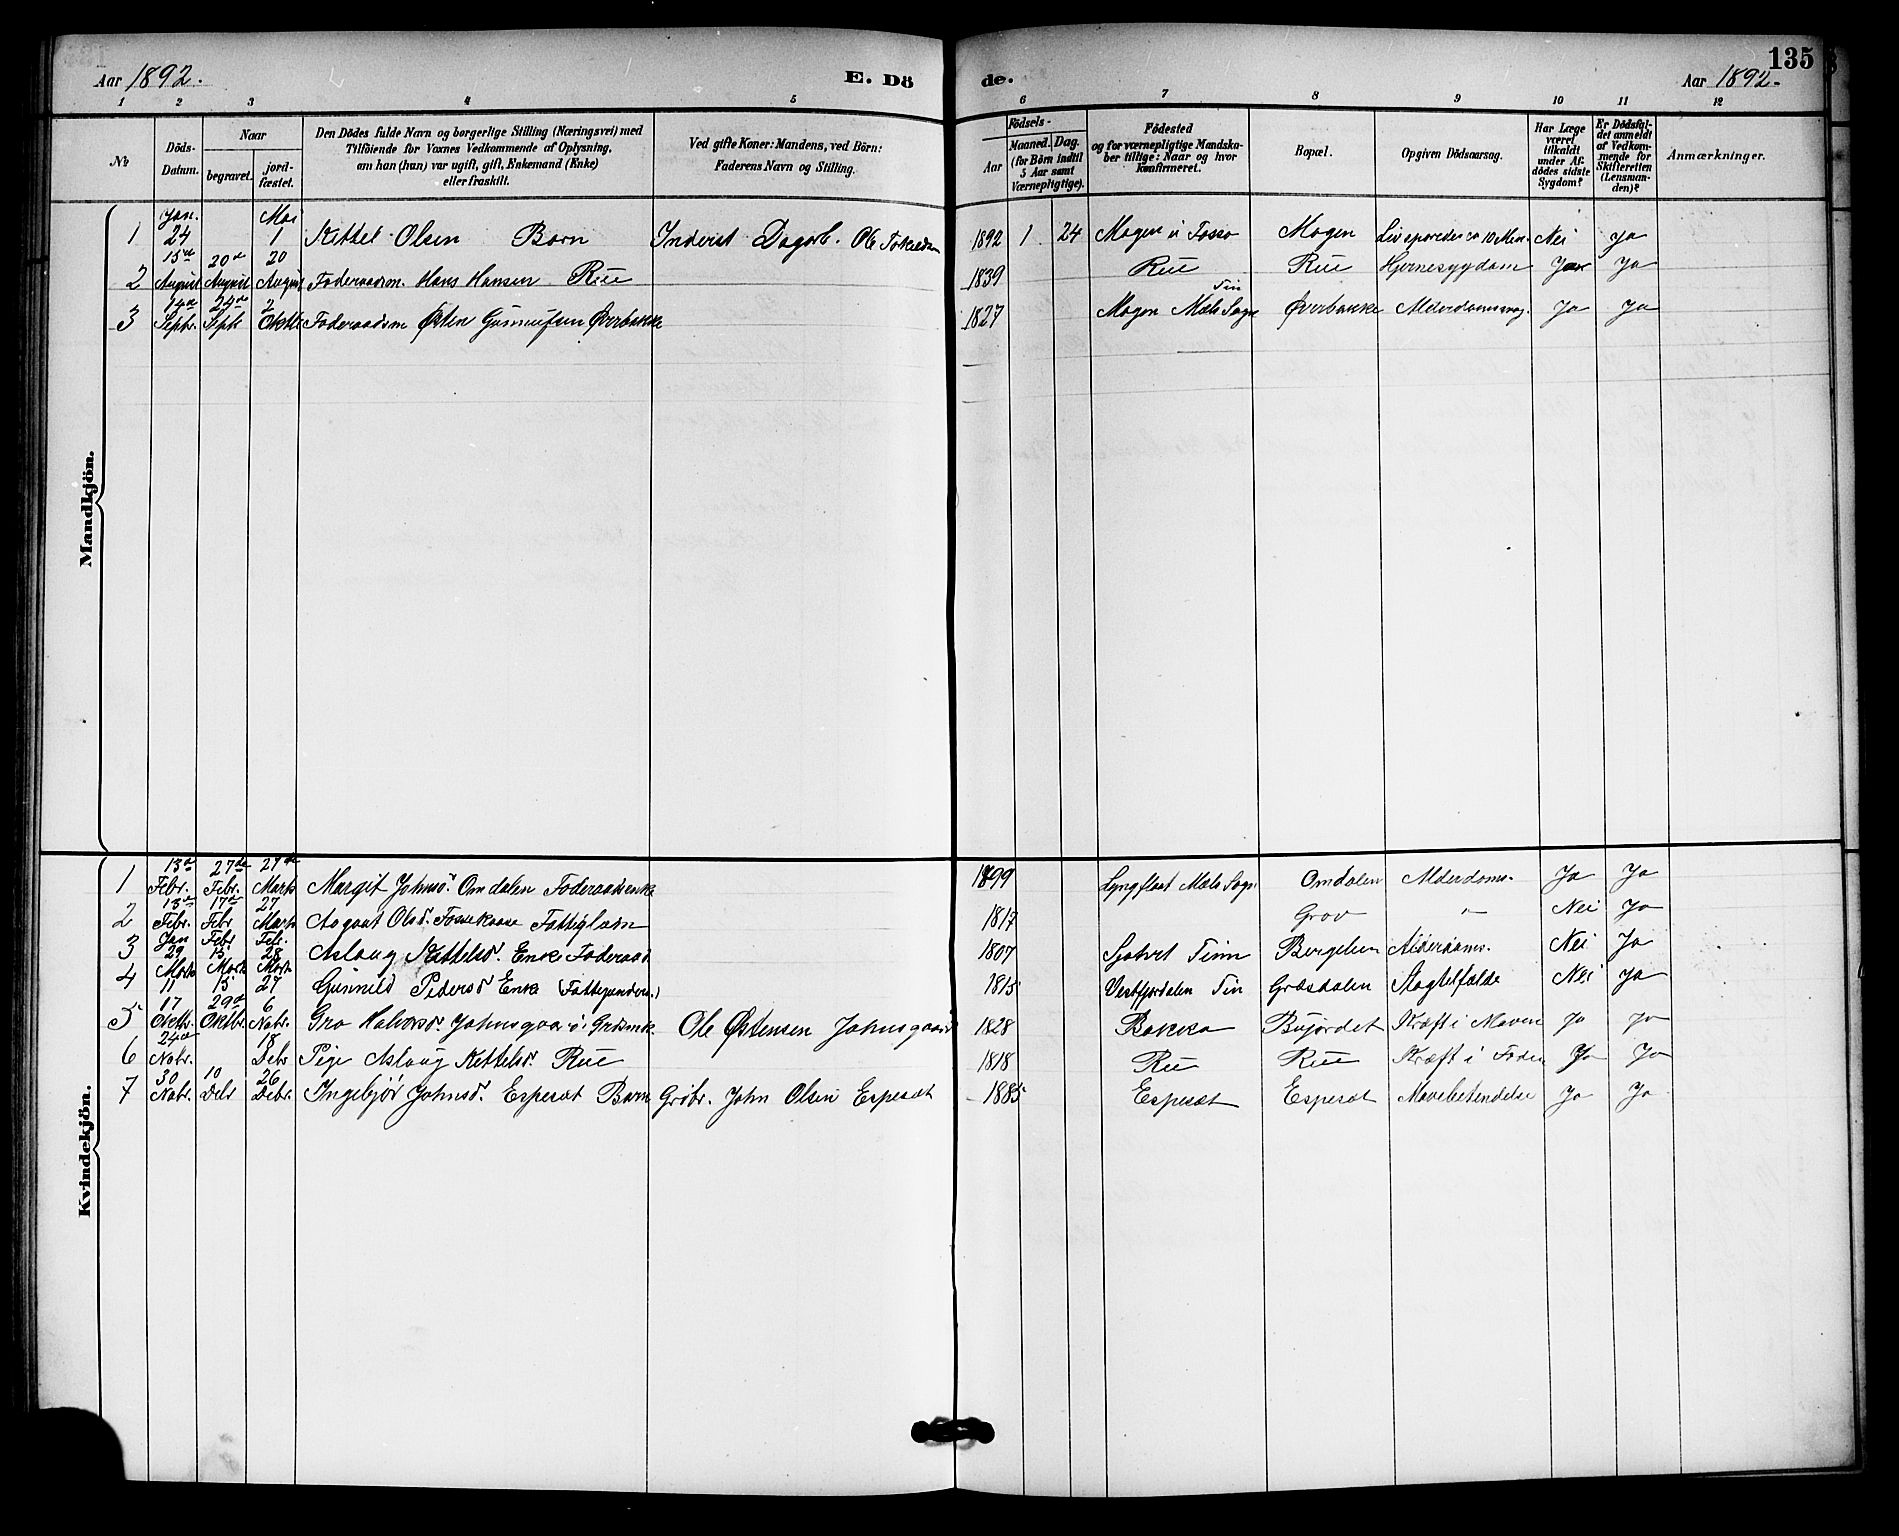 135
Aar 1892.
E. Döde.
Aar 1892.
1 2 3 4 5 6 7 8 9 10 11 12
№
Döds-Datum.
Naar
begravet.
jordfæstet.
Den Dödes fulde Navn og borgerlige Stilling (Næringsvei) med
Tilföiende for Voxnes Vedkommende af Oplysning,
om han (hun) var ugift, gift, Enkemand (Enke)
eller fraskilt.
Ved gifte Koner: Mandens, ved Börn:
Faderens Navn og Stilling.
Födsels-
Aar
Maaned. Dag.
(for Börn indtil
5 Aar samt
Værnepligtige).
Födested
og for værnepligtige Mandska-
ber tillige: Naar og hvor
Konfirmeret.
Bopæl.
Opgiven Dödsaarsag.
Har Læge
været
tilkaldt
under Af-
dödes sidste
Sygdom?
Er Dödsfal-
det anmeldt
af Vedkom-
mende for
Skifteretten
(Lensman-
den)?
Anmærkninger.
Mandkjön.
1 Jan. 24 Mai 1 Kittel Olsen Barn Inderst Dagarb. Ole 1892 1 24 Mogen Mogen Nei Ja
2 15de August 20de August 20 August Föderaadsm. Hans Hansen Rue 1839 Rue Rue Hjernesygdom Ja Ja
3 14de Septr. 24de Septr 2 Oktbr Föderaadsm Østen Gunnufsen Øverbakke 1827 Mogen Mæls Sogn Tin Øverbakke Alderdomssvag. Ja Ja
Kvindekjön.
1 13de Febr. 27de Febr. 27de Marts Margit Johnsd. Omdalen Föderaadsenke 1899 Lyngflaat Mæls Sogn Omdalen Alderdoms- Ja Ja
2 13de Febr. 17de Febr 27 Marts Aagaat Olsd. Fattiglæm 1817 Grov " Nei Ja
3 Jan 29 Febr 13 Feb. 28 Aslaug Kittelsd. Enke Föderaad 1807 Tinn Bergelien Alderdoms- Nei Ja
4 Marts 11 Marts 15 Marts 27 Gunnild Pedersd Enke 1815 Vestfjordalen Tin Græsdalen Slagtilfælde Nei Ja
5 17 Oktbr. 29de Oktbr. 6 Nobr. Gro Halvorsd. Johnsgaard Grdmk. Ole Østensen Johnsgaard 1828 Bakka Büjordet Kræft i Maven Ja Ja
6 24de Nobr. 18 Debr Pige Aslaug Kittelsd. Rue 1818 Rue Rue Kræft i Ja Ja
7 30 Nobr. 10 Debr 26 Debr. Ingebjør Johnsd. Espesæt Barn Grdbr. John Olsen Espesæt 1885 Espesæt Espesæt Mavebetendelse Ja Ja